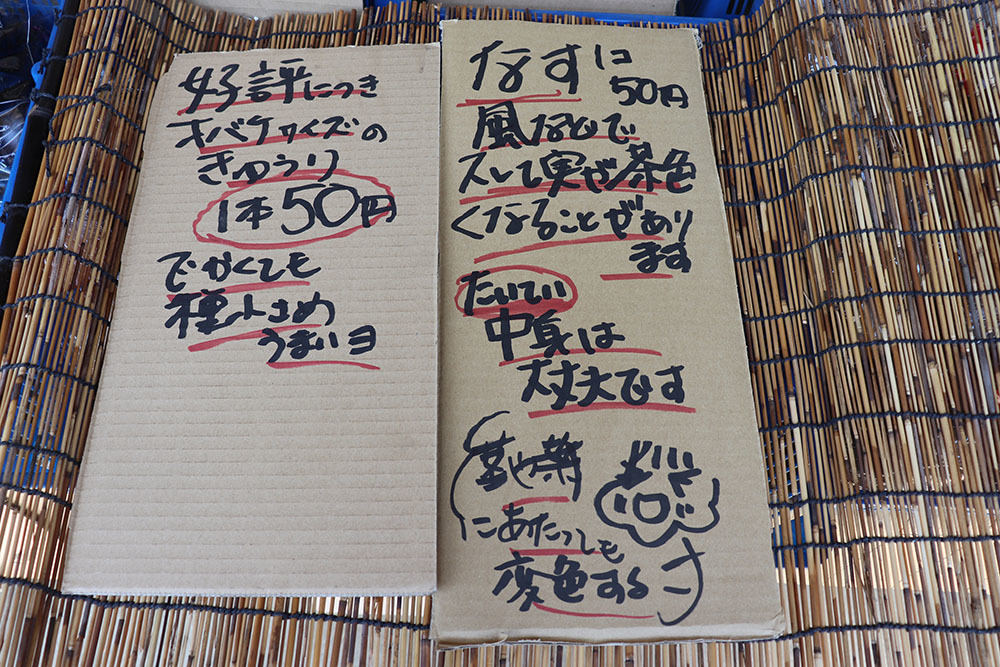 好評につき
オバケサイズの
きゅうり
1本50円
でかくても
種小さめ
うまいヨ
なすに
50円
風などで
スレて実が茶色
くなることがあり
ます
たいてい
中身は
大丈夫です
(茎や葉
にあたっても
変色する)